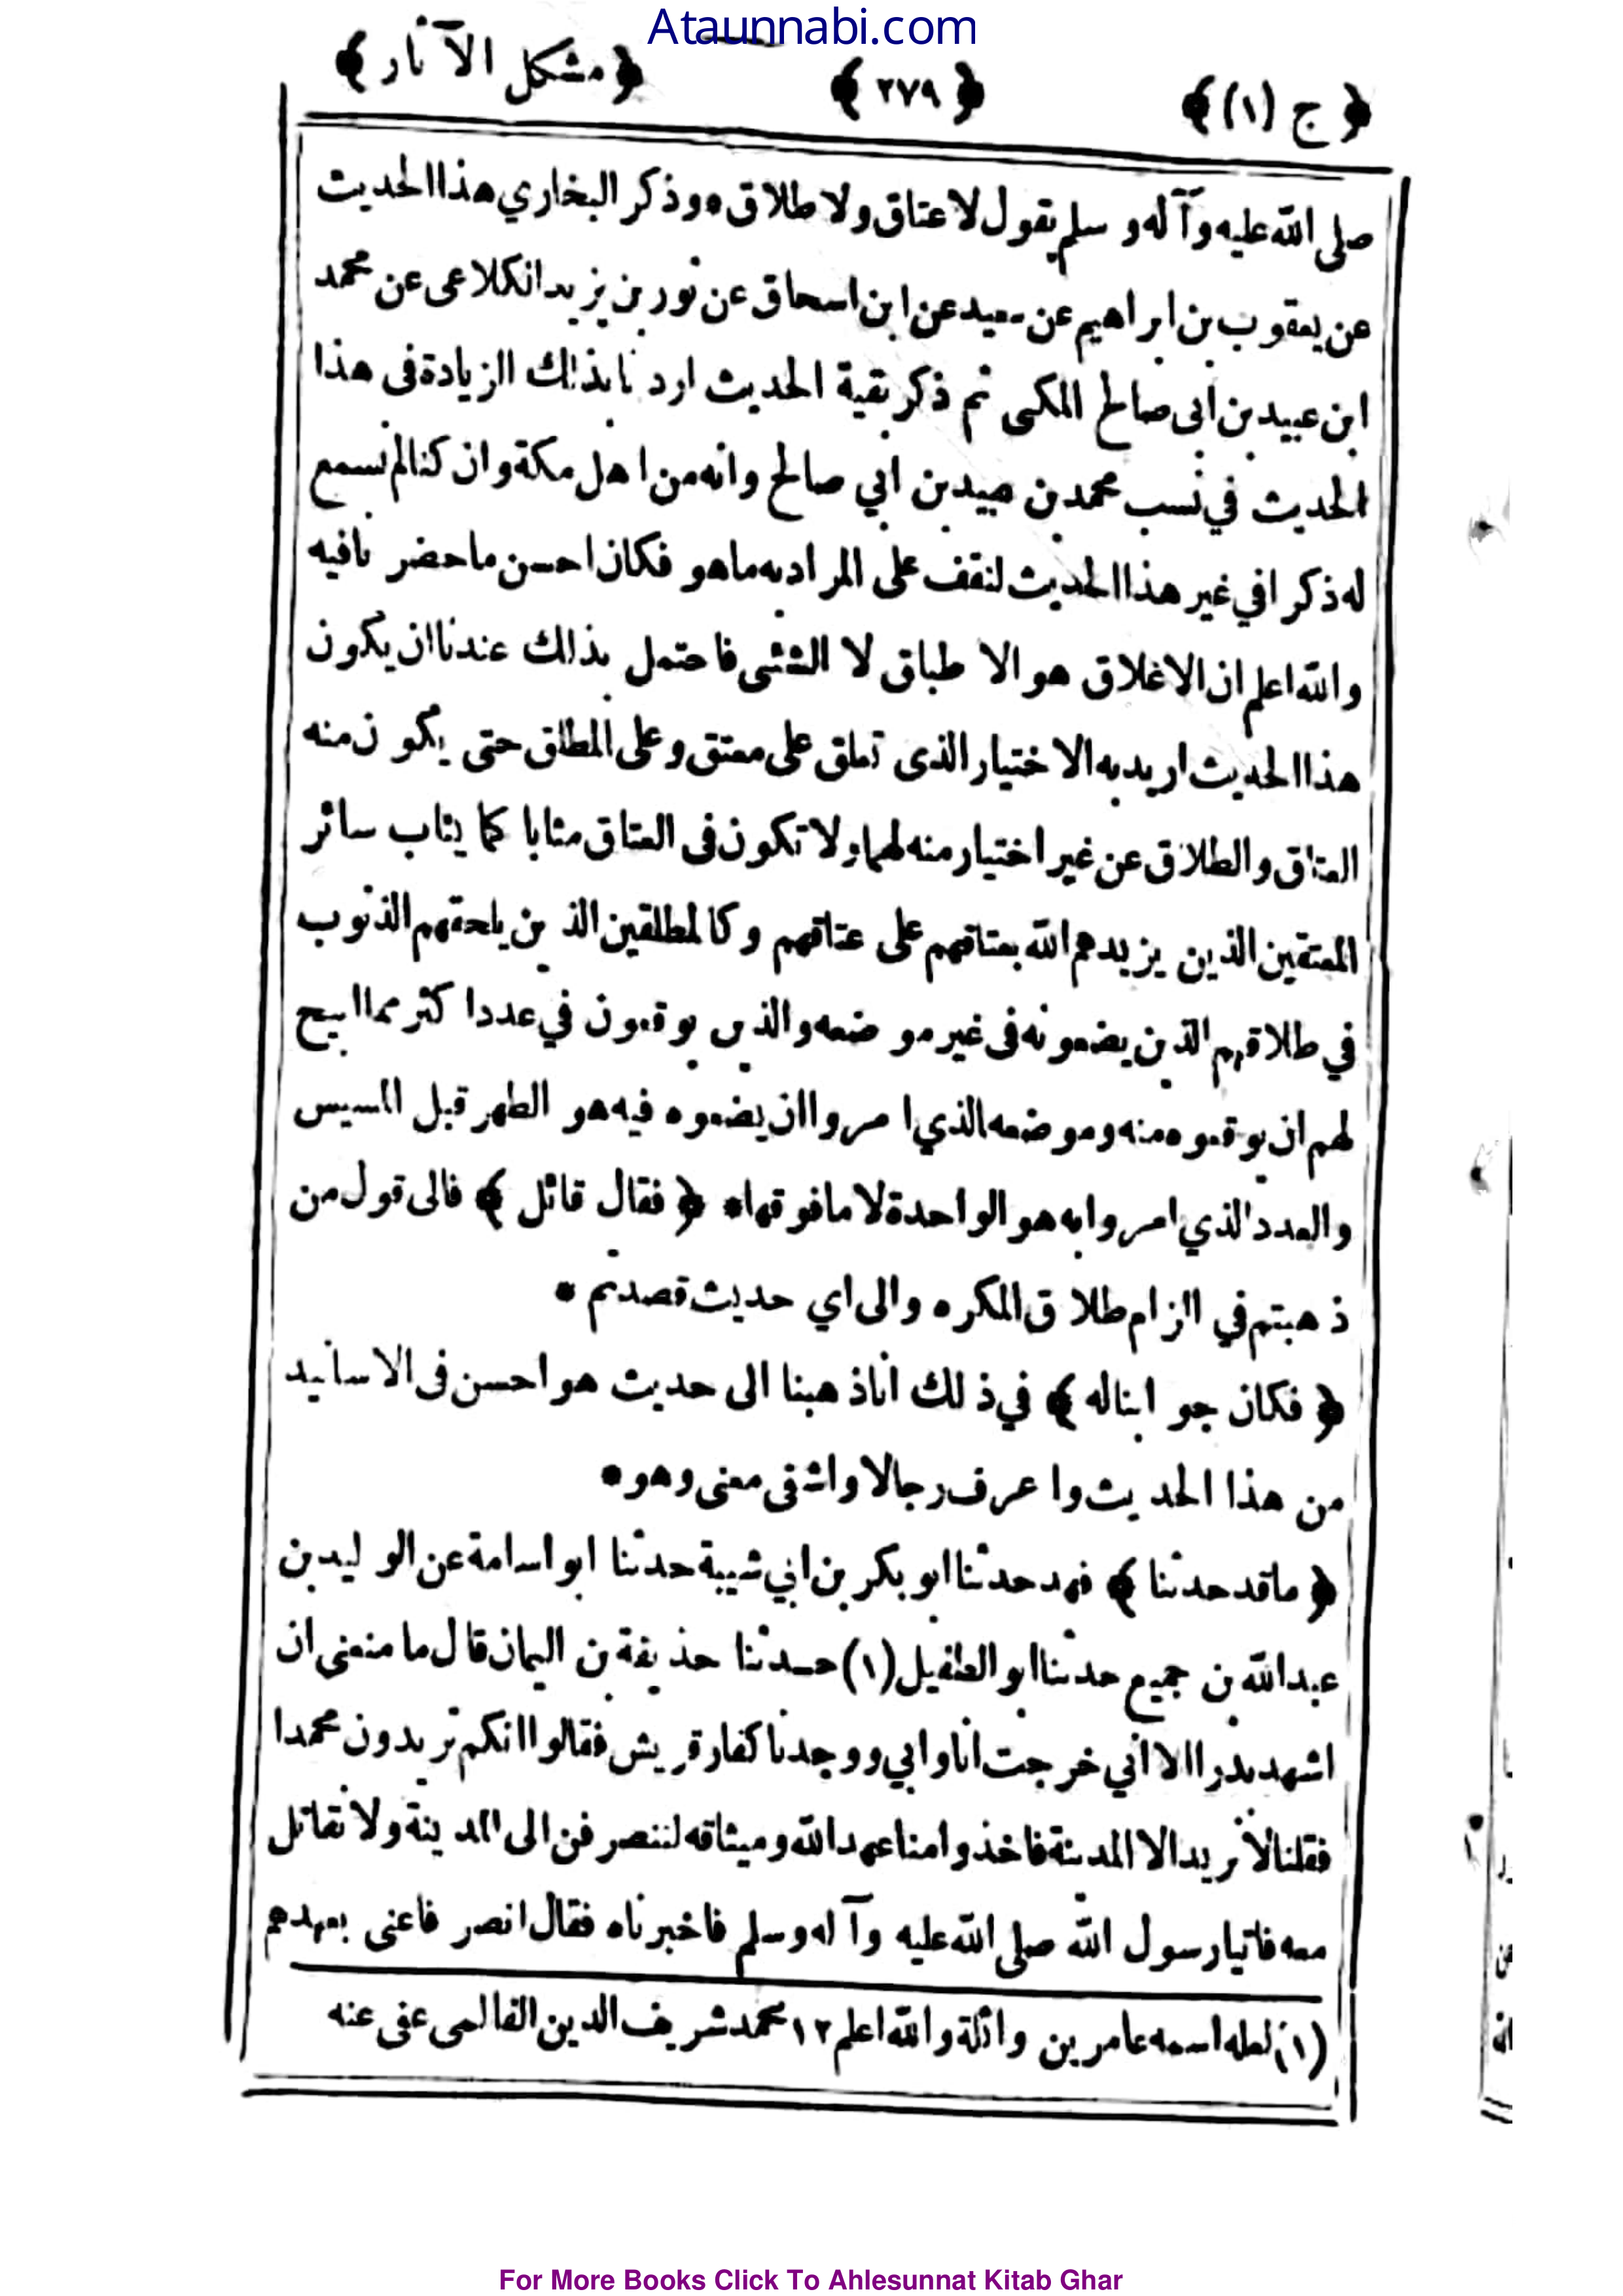 Ataunnabi.com
﴿ ج (١) ﴾ ﴿ ٢٧٩ ﴾ ﴿ مشكل الآثار ﴾
صلى الله عليه وآله وسلم يقول لا عتاق ولا طلاق * وذكر البخاري هذا الحديث
عن يعقوب بن ابراهيم عن سعيد عن ابن اسحاق عن ثور بن يزيد الكلاعى عن محمد
ابن عبيد بن ابى صالح المكى ثم ذكر بقية الحديث اردنا بذلك الزيادة فى هذا
الحديث في نسب محمد بن عبيد بن ابي صالح وانه من اهل مكة وان كنا لم نسمع
له ذكرا في غير هذا الحديث لنقف على المراد به ما هو فكان احسن ما حضرنا فيه
والله اعلم ان الاغلاق هو الاطباق لا الشئى فاحتمل بذالك عندنا ان يكون
هذا الحديث اريد به الاختيار الذى تعلق على معتق وعلى المطلق حتى يكون منه
العتاق والطلاق عن غير اختيار منه لهما ولا تكون فى العتاق مثابا كما يثاب سائر
المعتقين الذين يزيدهم الله بعتاقهم على عتاقهم وكالمطلقين الذين يلحقهم الذنوب
في طلاقهم الذين يضعونه فى غير موضعه والذين يوقعون في عدد اكثر مما ابيح
لهم ان يوقعوه منه وموضعه الذي امروا ان يضعوه فيه هو الطهر قبل المسيس
والعدد الذي امروا به هو الواحدة لا ما فوقها * ﴿ فقال قائل ﴾ فالى قول من
ذهبتم في الزام طلاق المكره والى اي حديث قصدتم *
﴿ فكان جوابنا له ﴾ في ذلك انا ذهبنا الى حديث هو احسن فى الاسانيد
من هذا الحديث واعرف رجالا واشفى معنى وهو *
﴿ ما قد حدثنا ﴾ فهد حدثنا ابو بكر بن ابي شيبة حدثنا ابو اسامة عن الوليد بن
عبد الله بن جميع حدثنا ابو الطفيل (١) حدثنا حذيفة بن اليمان قال ما منعنى ان
اشهد بدرا الا اني خرجت انا وابي ووجدنا كفار قريش فقالوا انكم تريدون محمدا
فقلنا لا نريد الا المدينة فاخذوا منا عهد الله وميثاقه لننصرفن الى المدينة ولا نقاتل
معه فاتيا رسول الله صلى الله عليه وآله وسلم فاخبرناه فقال انصر فاعنى بعهدهم
(١) لعله اسمه عامر بن واثلة والله اعلم ١٢ محمد شريف الدين الفالمى عفى عنه
For More Books Click To Ahlesunnat Kitab Ghar